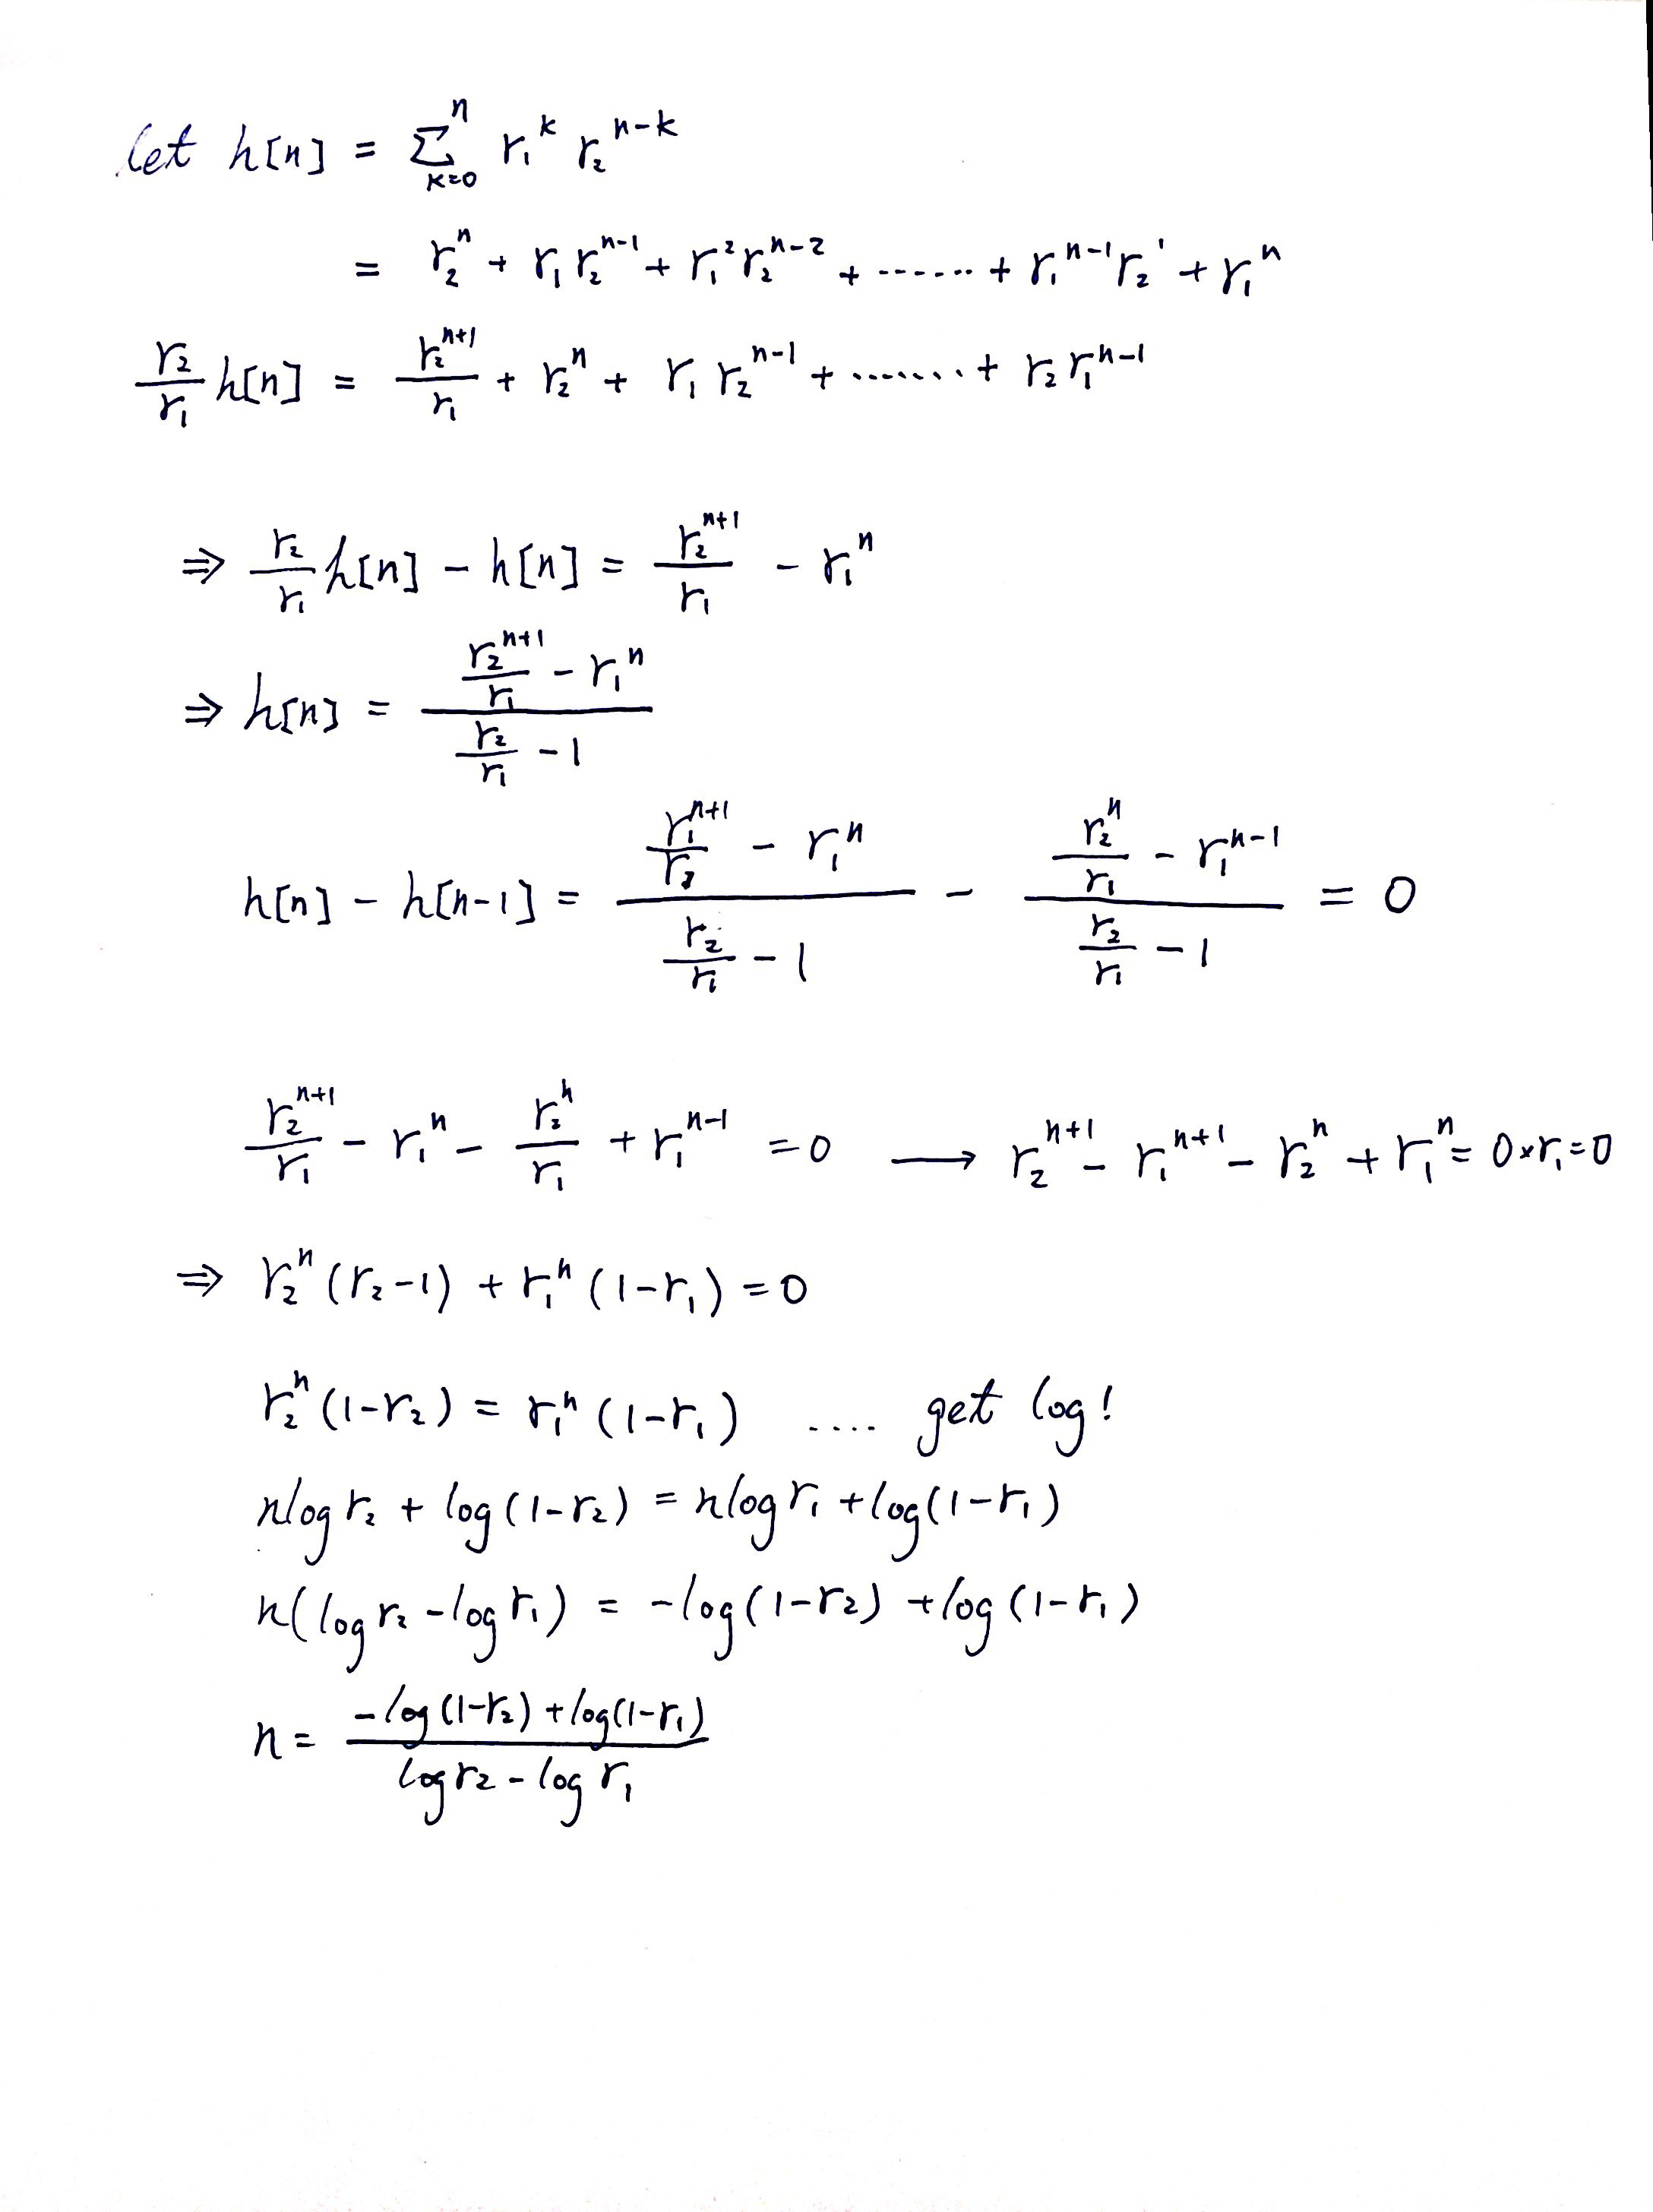 let h[n] = Σ_{k=0}^{n} r₁^k r₂^{n-k}
= r₂^n + r₁ r₂^{n-1} + r₁^2 r₂^{n-2} + ...... + r₁^{n-1} r₂^1 + r₁^n
\frac{r₂}{r₁} h[n] = \frac{r₂^{n+1}}{r₁} + r₂^n + r₁ r₂^{n-1} + ....... + r₂ r₁^{n-1}
⇒ \frac{r₂}{r₁} h[n] - h[n] = \frac{r₂^{n+1}}{r₁} - r₁^n
⇒ h[n] = \frac{\frac{r₂^{n+1}}{r₁} - r₁^n}{\frac{r₂}{r₁} - 1}
h[n] - h[n-1] = \frac{\frac{r₁^{n+1}}{r₂} - r₁^n}{\frac{r₂}{r₁} - 1} - \frac{\frac{r₂^n}{r₁} - r₁^{n-1}}{\frac{r₂}{r₁} - 1} = 0
\frac{r₂^{n+1}}{r₁} - r₁^n - \frac{r₂^n}{r₁} + r₁^{n-1} = 0 → r₂^{n+1} - r₁^{n+1} - r₂^n + r₁^n = 0×r₁ = 0
⇒ r₂^n (r₂-1) + r₁^n (1-r₁) = 0
r₂^n (1-r₂) = r₁^n (1-r₁) .... get log!
nlog r₂ + log(1-r₂) = nlog r₁ + log(1-r₁)
n(log r₂ - log r₁) = -log(1-r₂) + log(1-r₁)
n = \frac{-log(1-r₂) + log(1-r₁)}{log r₂ - log r₁}